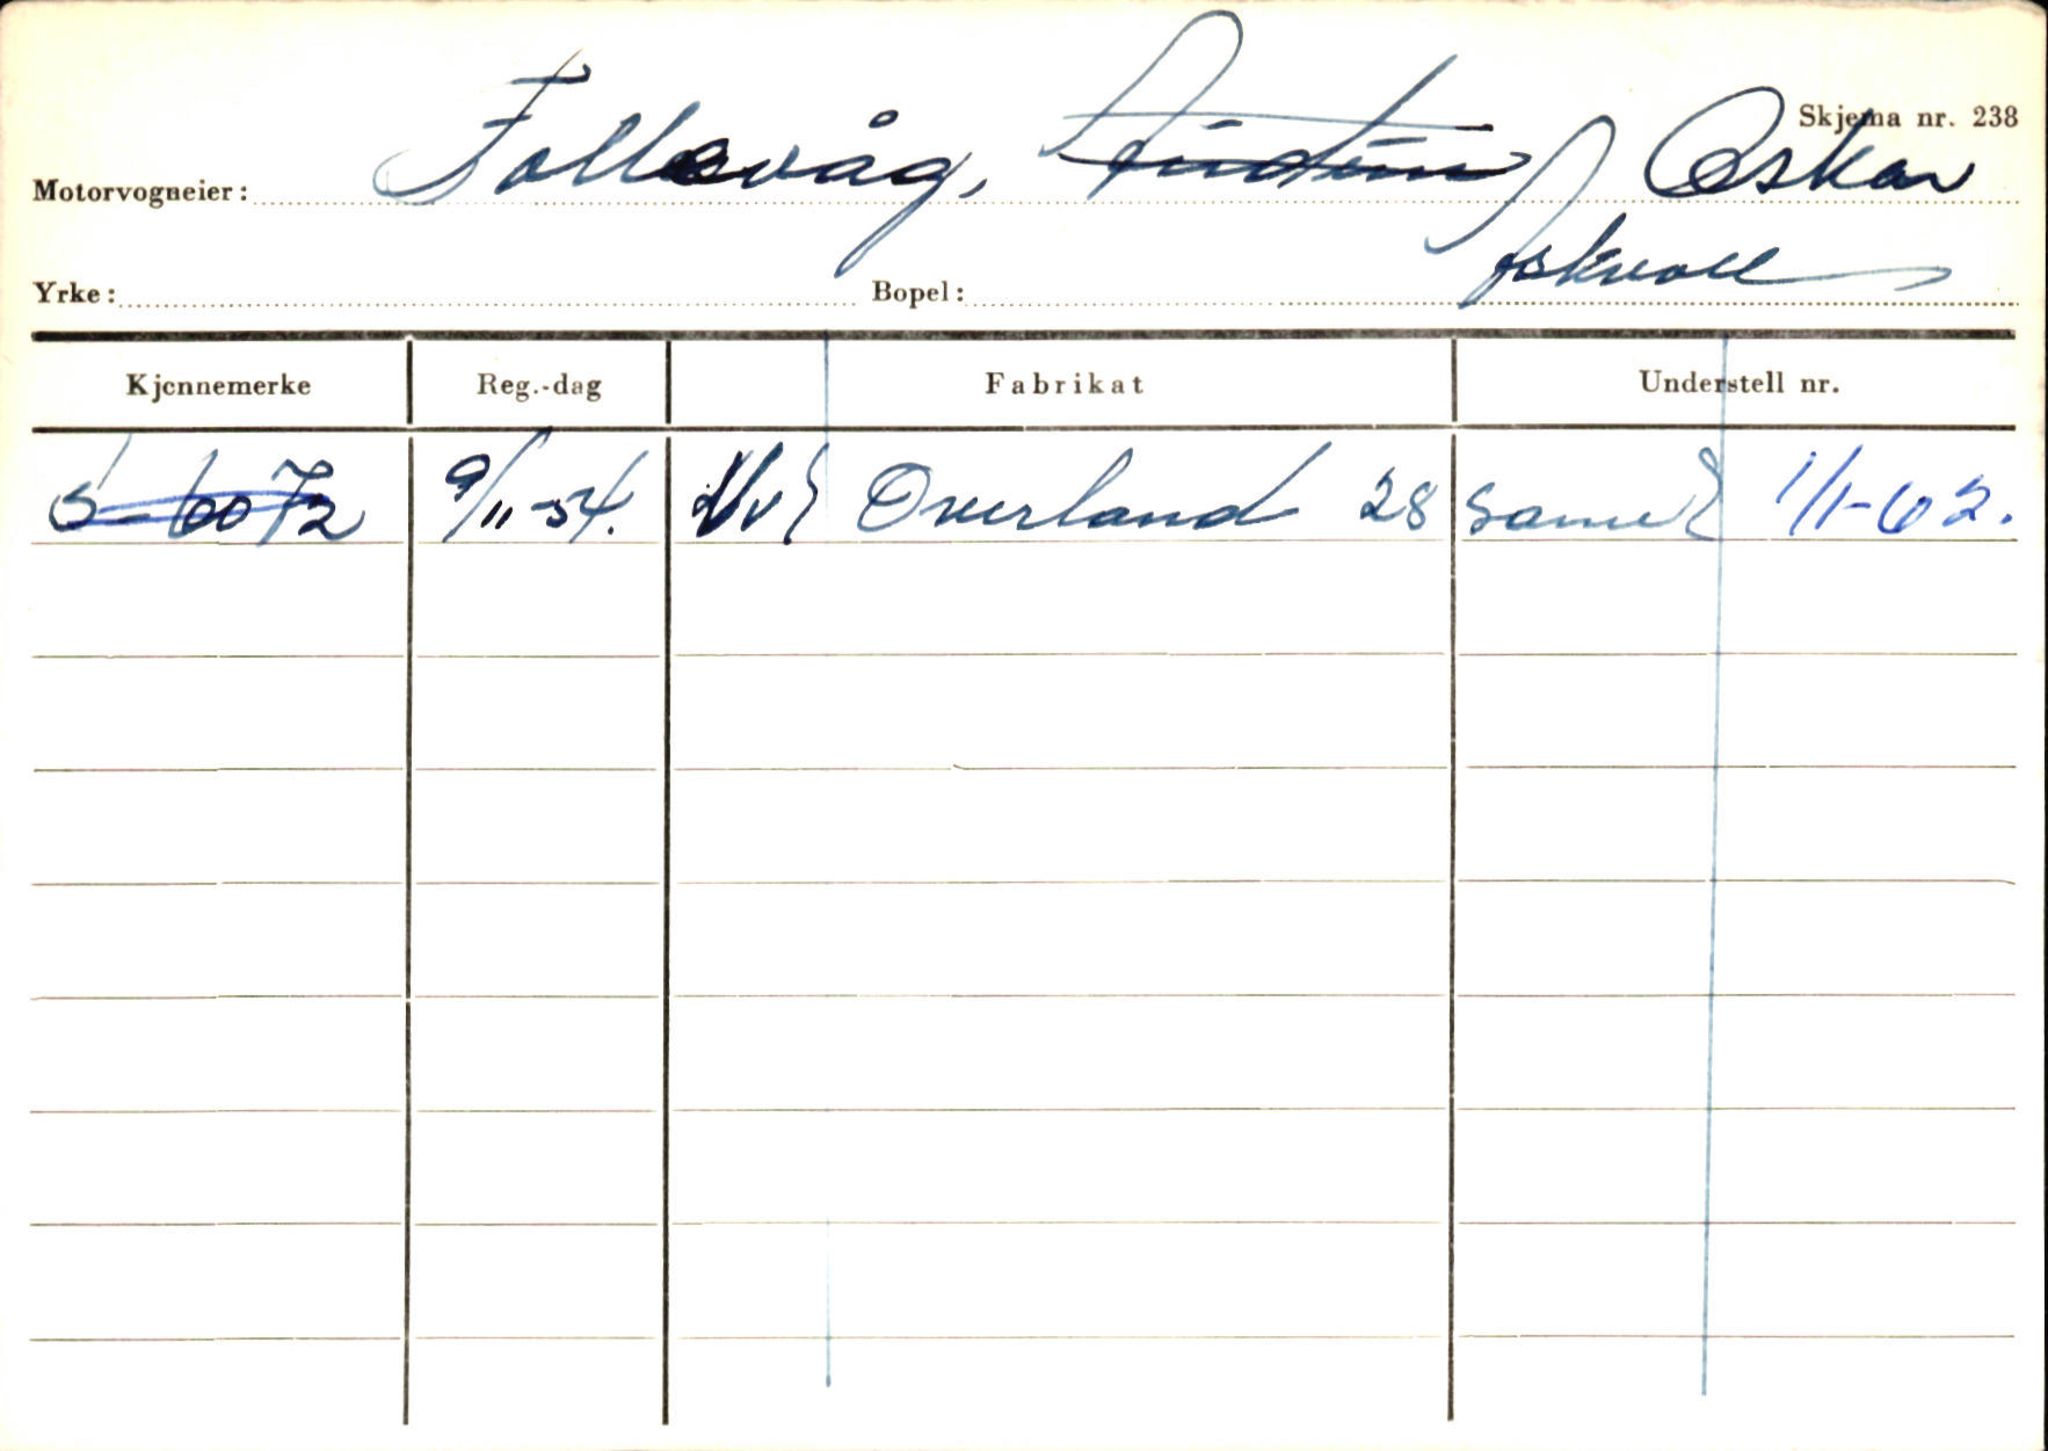 Skjema nr. 238
Motorvogneier: Follevåg, Oskar
Yrke: Bopel: Askvoll
Kjennemerke Reg.-dag Fabrikat Understell nr.
S-6072 9/11-54. Vv Overland 28 same 1/1-62.